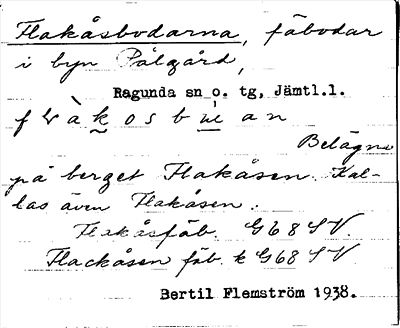 Flakåsbodarna, fäbodar
i byn Pålgård,
Ragunda sn o. tg, Jämtl.l.
Belägna
på berget Flakåsen. Kal-
las även Flakåsen.
Flakåsfäb. G68SV
Flackåsen fäb. k G68SV
Bertil Flemström 1938.